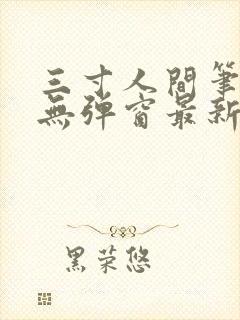 三寸人間筆
無彈窗最新
黑荣悠